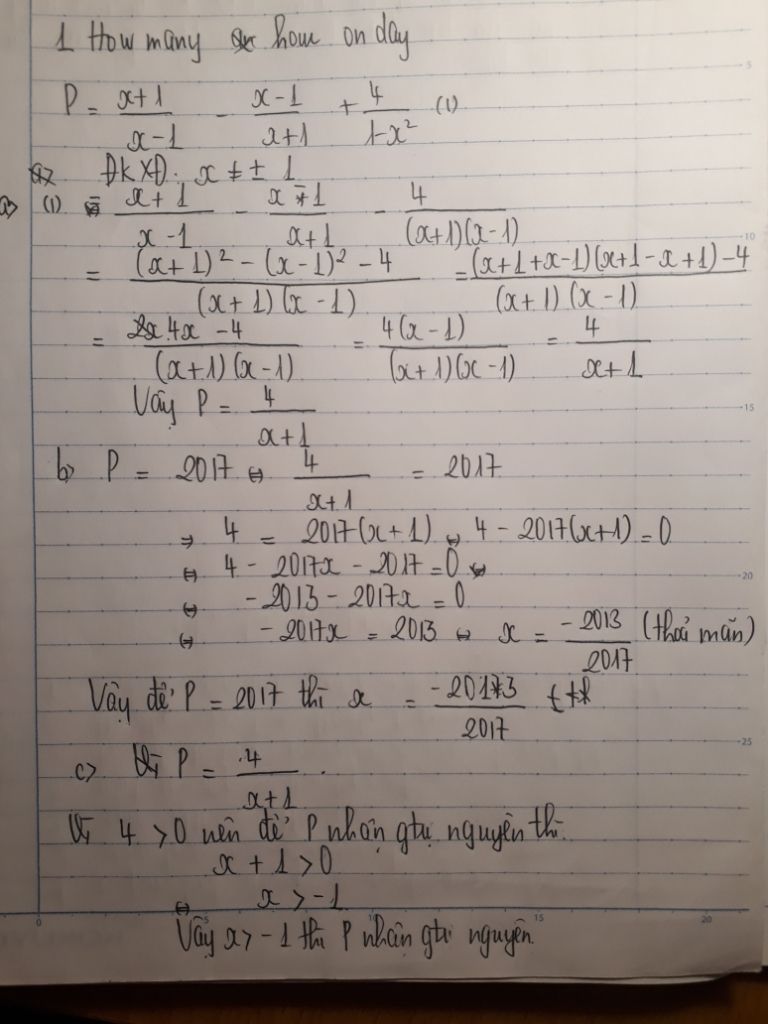 1 How many hour on day
P = \frac{x+1}{x-1} - \frac{x-1}{x+1} + \frac{4}{1-x^2} (1)
ĐKXĐ. x ≠ ± 1
a> (1) = \frac{x+1}{x-1} - \frac{x-1}{x+1} - \frac{4}{(x+1)(x-1)}
= \frac{(x+1)^2 - (x-1)^2 - 4}{(x+1)(x-1)} = \frac{(x+1+x-1)(x+1-x+1) - 4}{(x+1)(x-1)}
= \frac{4x - 4}{(x+1)(x-1)} = \frac{4(x-1)}{(x+1)(x-1)} = \frac{4}{x+1}
Vây P = \frac{4}{x+1}
b> P = 2017 ⇔ \frac{4}{x+1} = 2017
⇒ 4 = 2017(x+1) ⇔ 4 - 2017(x+1) = 0
⇔ 4 - 2017x - 2017 = 0
⇔ - 2013 - 2017x = 0
⇔ - 2017x = 2013 ⇔ x = \frac{-2013}{2017} (thoả mãn)
Vây để P = 2017 thì x = \frac{-2013}{2017}
c> P = \frac{4}{x+1}
Vì 4 > 0 nên để P nhận gtrị nguyên thì
x + 1 > 0
⇔ x > -1
Vây x > -1 thì P nhận gtrị nguyên.
0 5 10 15 20
5
10
15
20
25